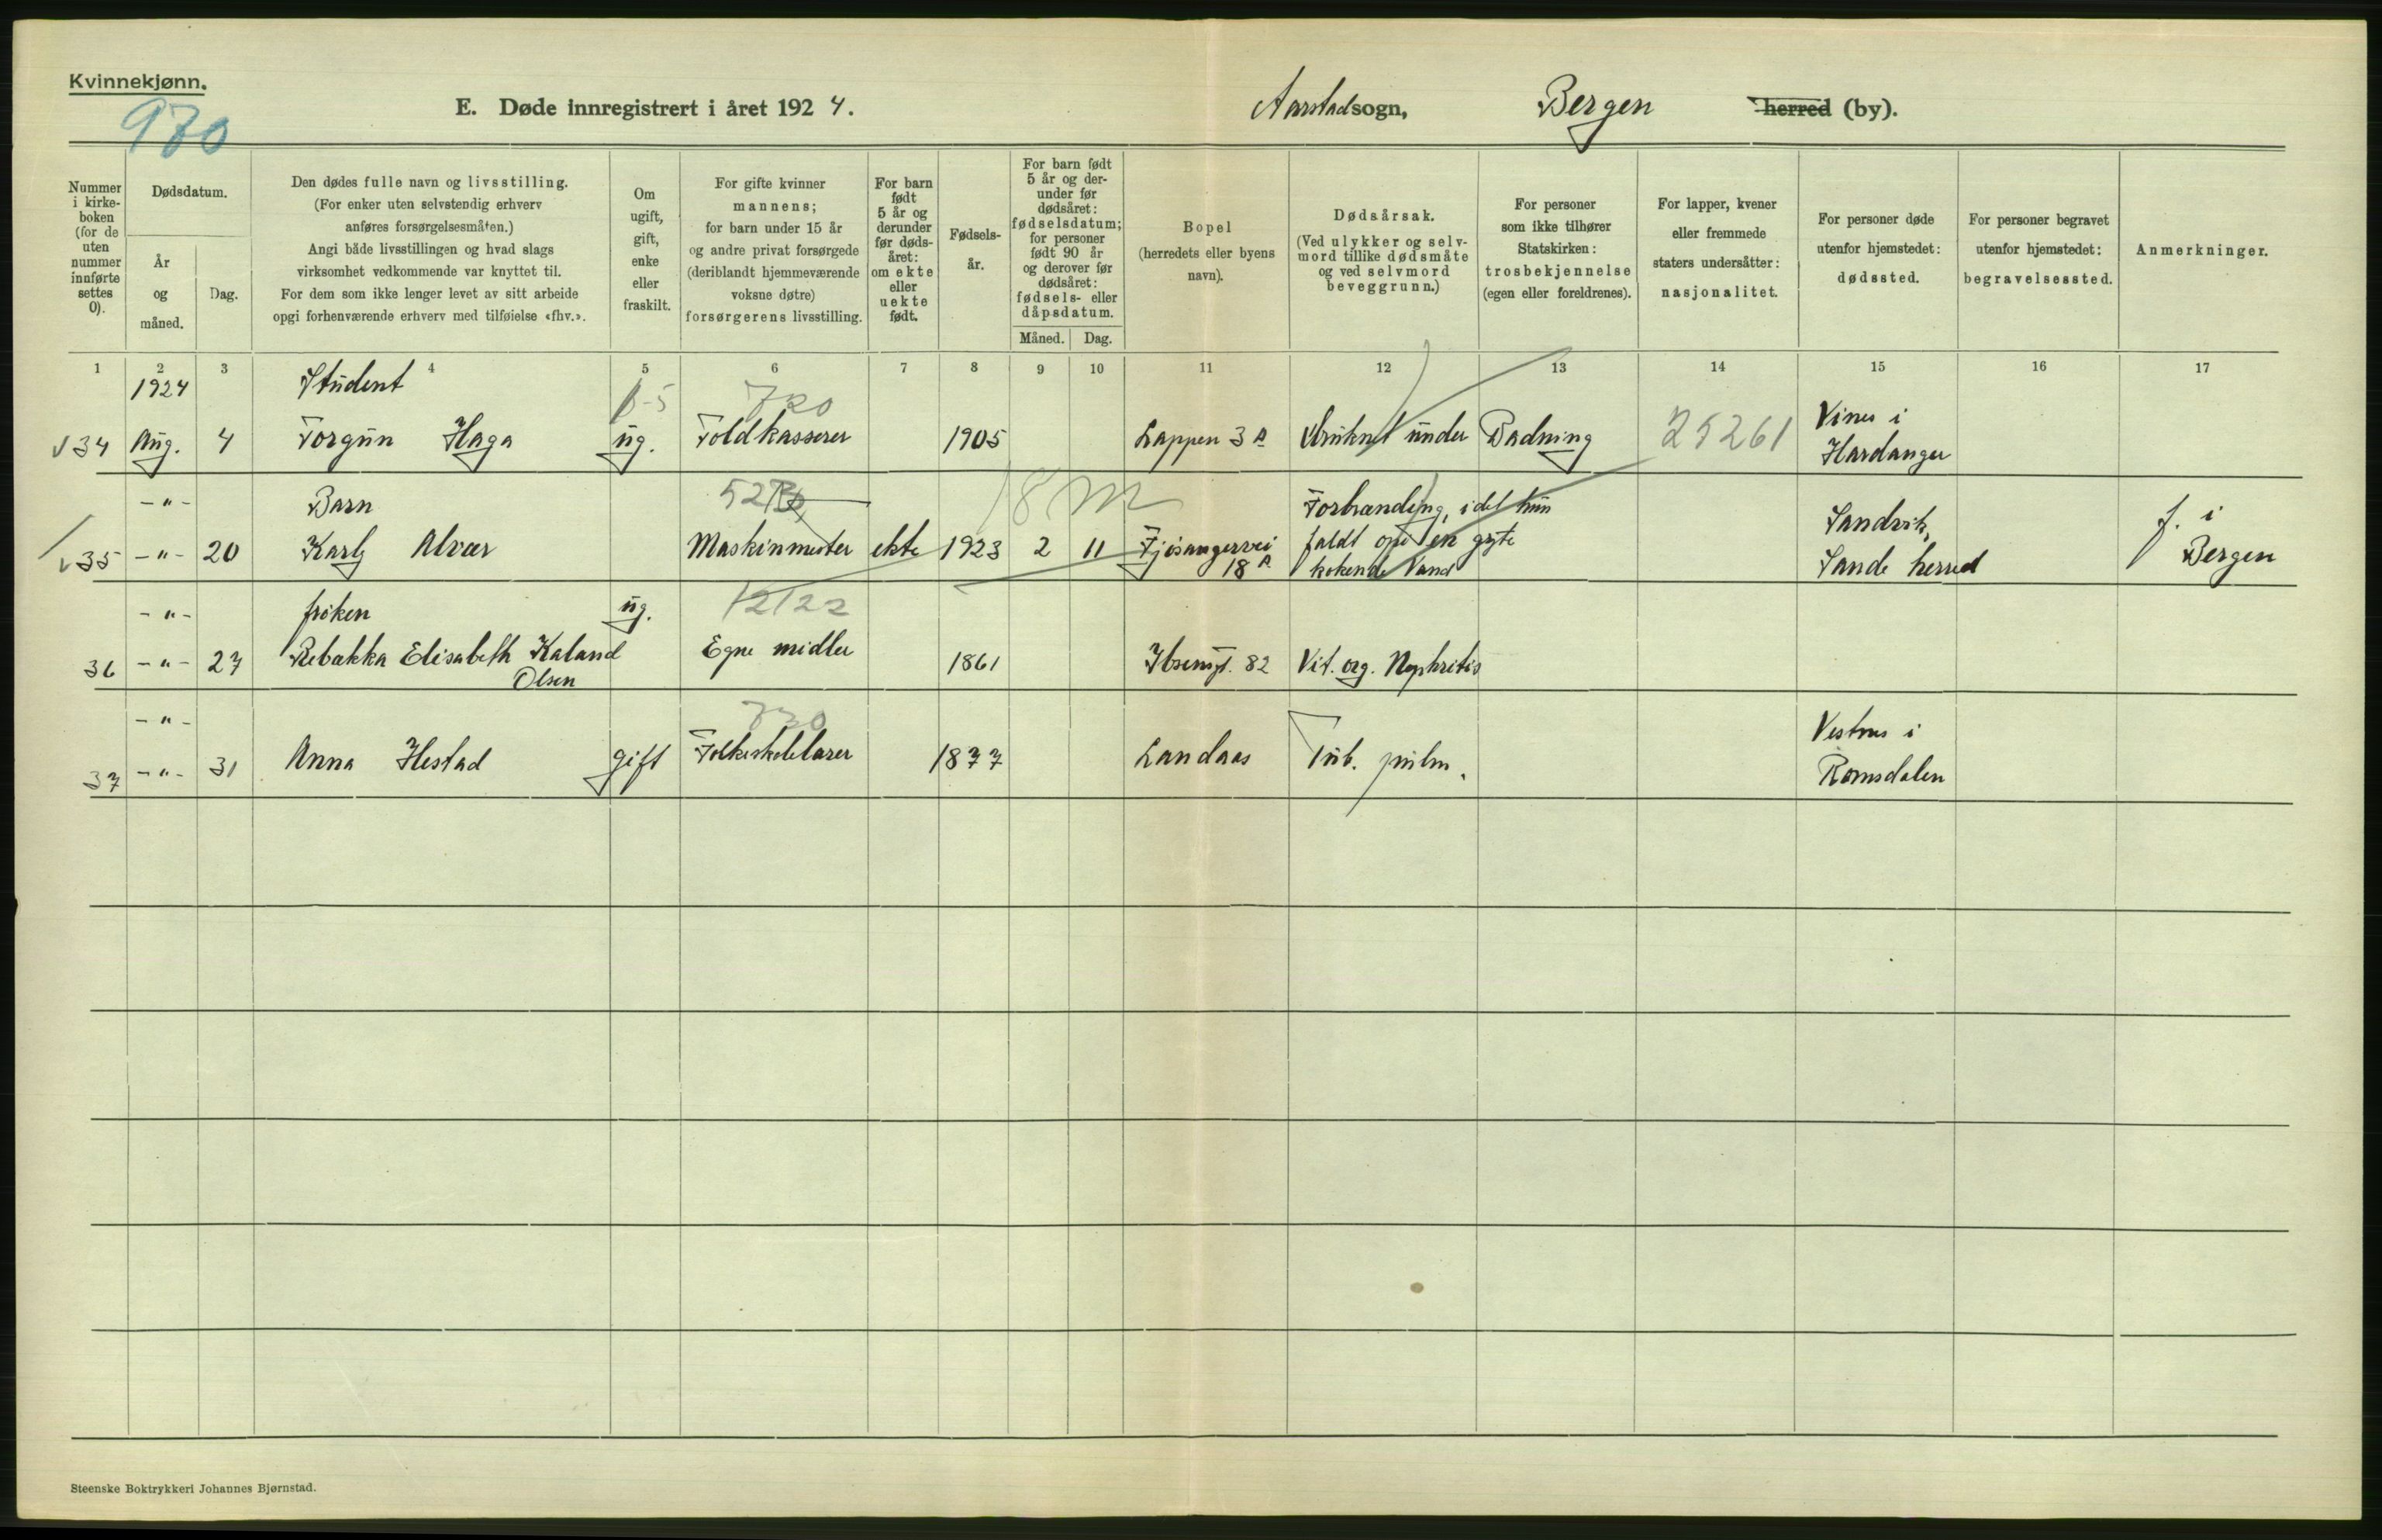 Kvinnekjønn.
970
E. Døde innregistrert i året 1924.
Aarstad sogn, Bergen herred (by).
Nummer i kirkeboken (for de uten nummer innførte settes 0).
Dødsdatum.
År og måned.
Dag.
Den dødes fulle navn og livsstilling.
(For enker uten selvstendig erhverv
anføres forsørgelsesmåten.)
Angi både livsstillingen og hvad slags
virksomhet vedkommende var knyttet til.
For dem som ikke lenger levet av sitt arbeide
opgi forhenværende erhverv med tilføielse «fhv.».
Om
ugift,
gift,
enke
eller
fraskilt.
For gifte kvinner
mannens;
for barn under 15 år
og andre privat forsørgede
(deriblandt hjemmeværende
voksne døtre)
forsørgerens livsstilling.
For barn
født
5 år og
derunder
før døds-
året:
om ekte
eller
uekte
født.
Fødsels-
år.
For barn født
5 år og der-
under før
dødsåret:
fødselsdatum;
for personer
født 90 år
og derover før
dødsåret:
fødsels- eller
dåpsdatum.
Måned. Dag.
Bopel
(herredets eller byens
navn).
Dødsårsak.
(Ved ulykker og selv-
mord tillike dødsmåte
og ved selvmord
beveggrunn.)
For personer
som ikke tilhører
Statskirken:
trosbekjennelse
(egen eller foreldrenes).
For lapper, kvener
eller fremmede
staters undersåtter:
nasjonalitet.
For personer døde
utenfor hjemstedet:
dødssted.
For personer begravet
utenfor hjemstedet:
begravelsessted.
Anmerkninger.
1 2 3 4 5 6 7 8 9 10 11 12 13 14 15 16 17
1924 Student 720 Vines i
34 Aug. 4 Torgun Haga ug. Toldkasserer 1905 Lappen 3 A Druknet under Badning 25261 Hardanger
-"- Barn 18 m Forbrænding, idet hun Sandvik, f. i
35 -"- 20 Karly Alvær Maskinmester ekte 1923 2 11 Fjøsangervei faldt opi en gryte Sande herred Bergen
18 A kokende Vand
-"- frøken ug. 12122
36 -"- 27 Rebekka Elisabeth Kaland Egne midler 1861 Ibsensgt. 82 Vit. org. Nephritis
Olsen
-"- 730 Vestnes i
37 -"- 31 Anna Hestad gift Folkeskolelærer 1877 Landaas Tub. pulm. Romsdalen
Steenske Boktrykkeri Johannes Bjørnstad.